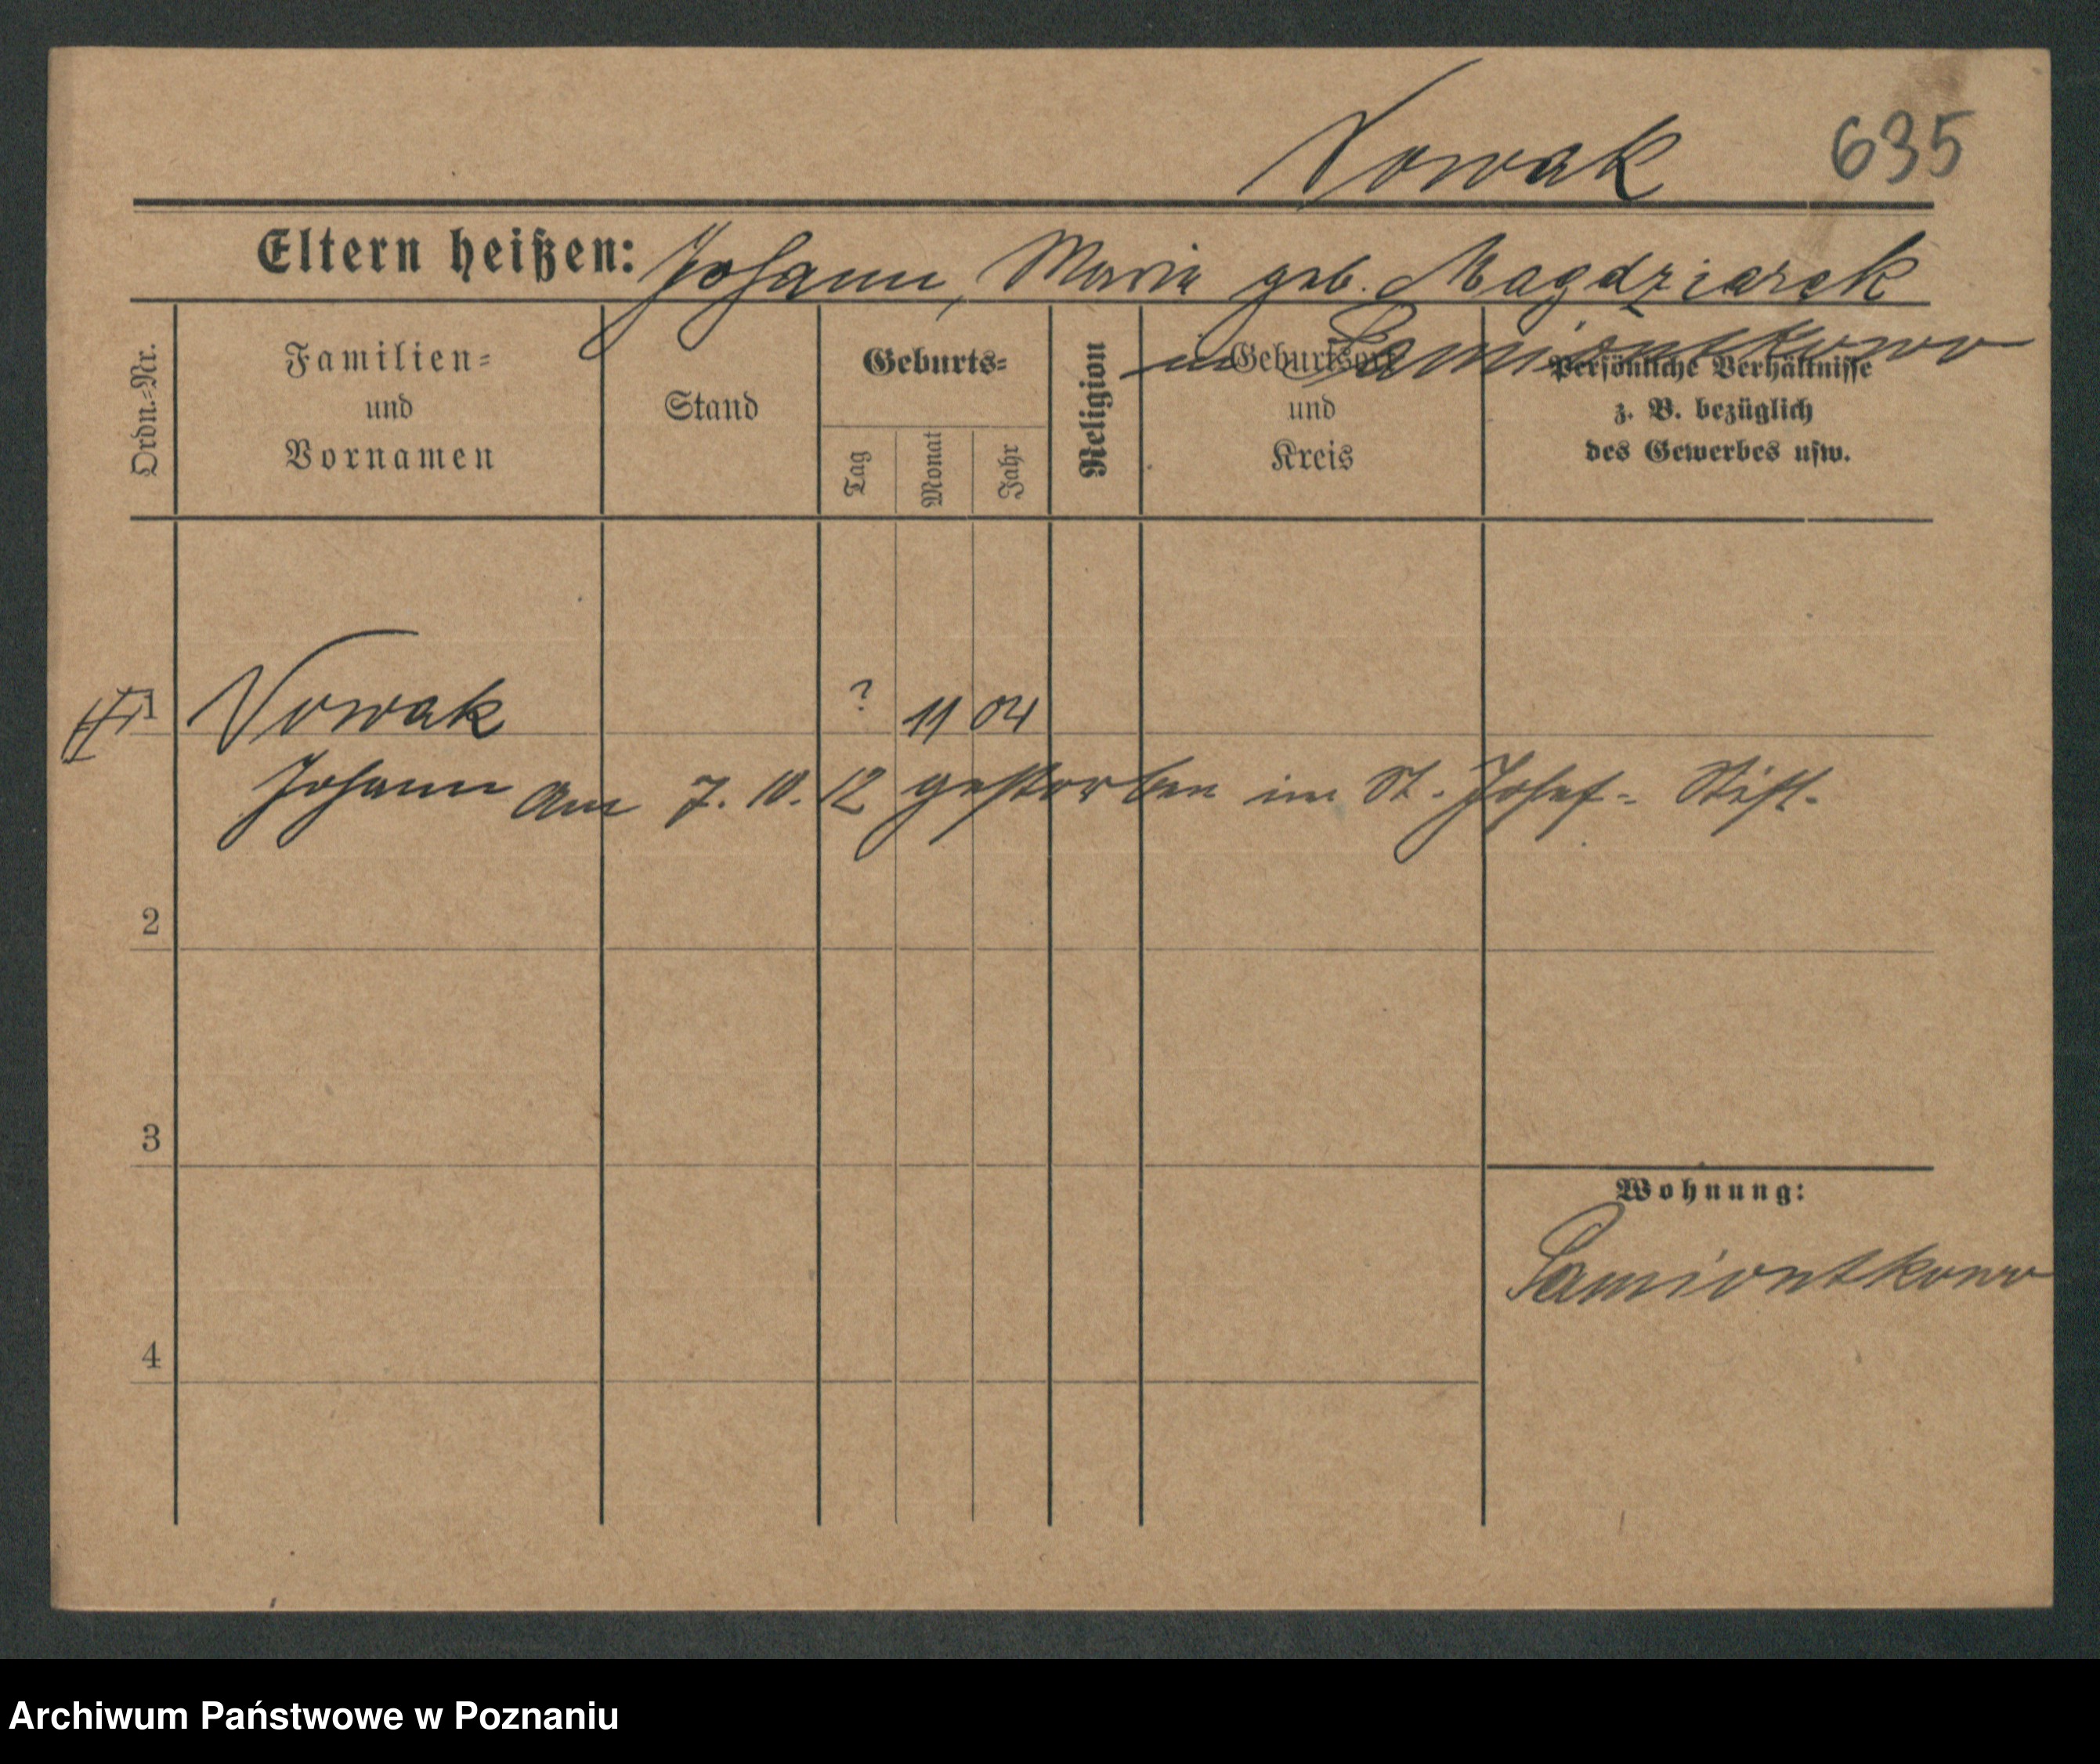 Nowak 635
Eltern heißen: Johann, Maria geb. Magdziarek
in Lamiontkowo
Ordn.-Nr.
Familien-
und
Vornamen
Stand
Geburts-
Tag
Monat
Jahr
Religion
Geburtsort
und
Kreis
Persönliche Verhältnisse
z. B. bezüglich
des Gewerbes usw.
1 Nowak ? 11 04
Johann am 7. 10. 12 gestorben im St. Josef- Stift.
2
3
Wohnung:
Lamiontkowo
4
Archiwum Państwowe w Poznaniu